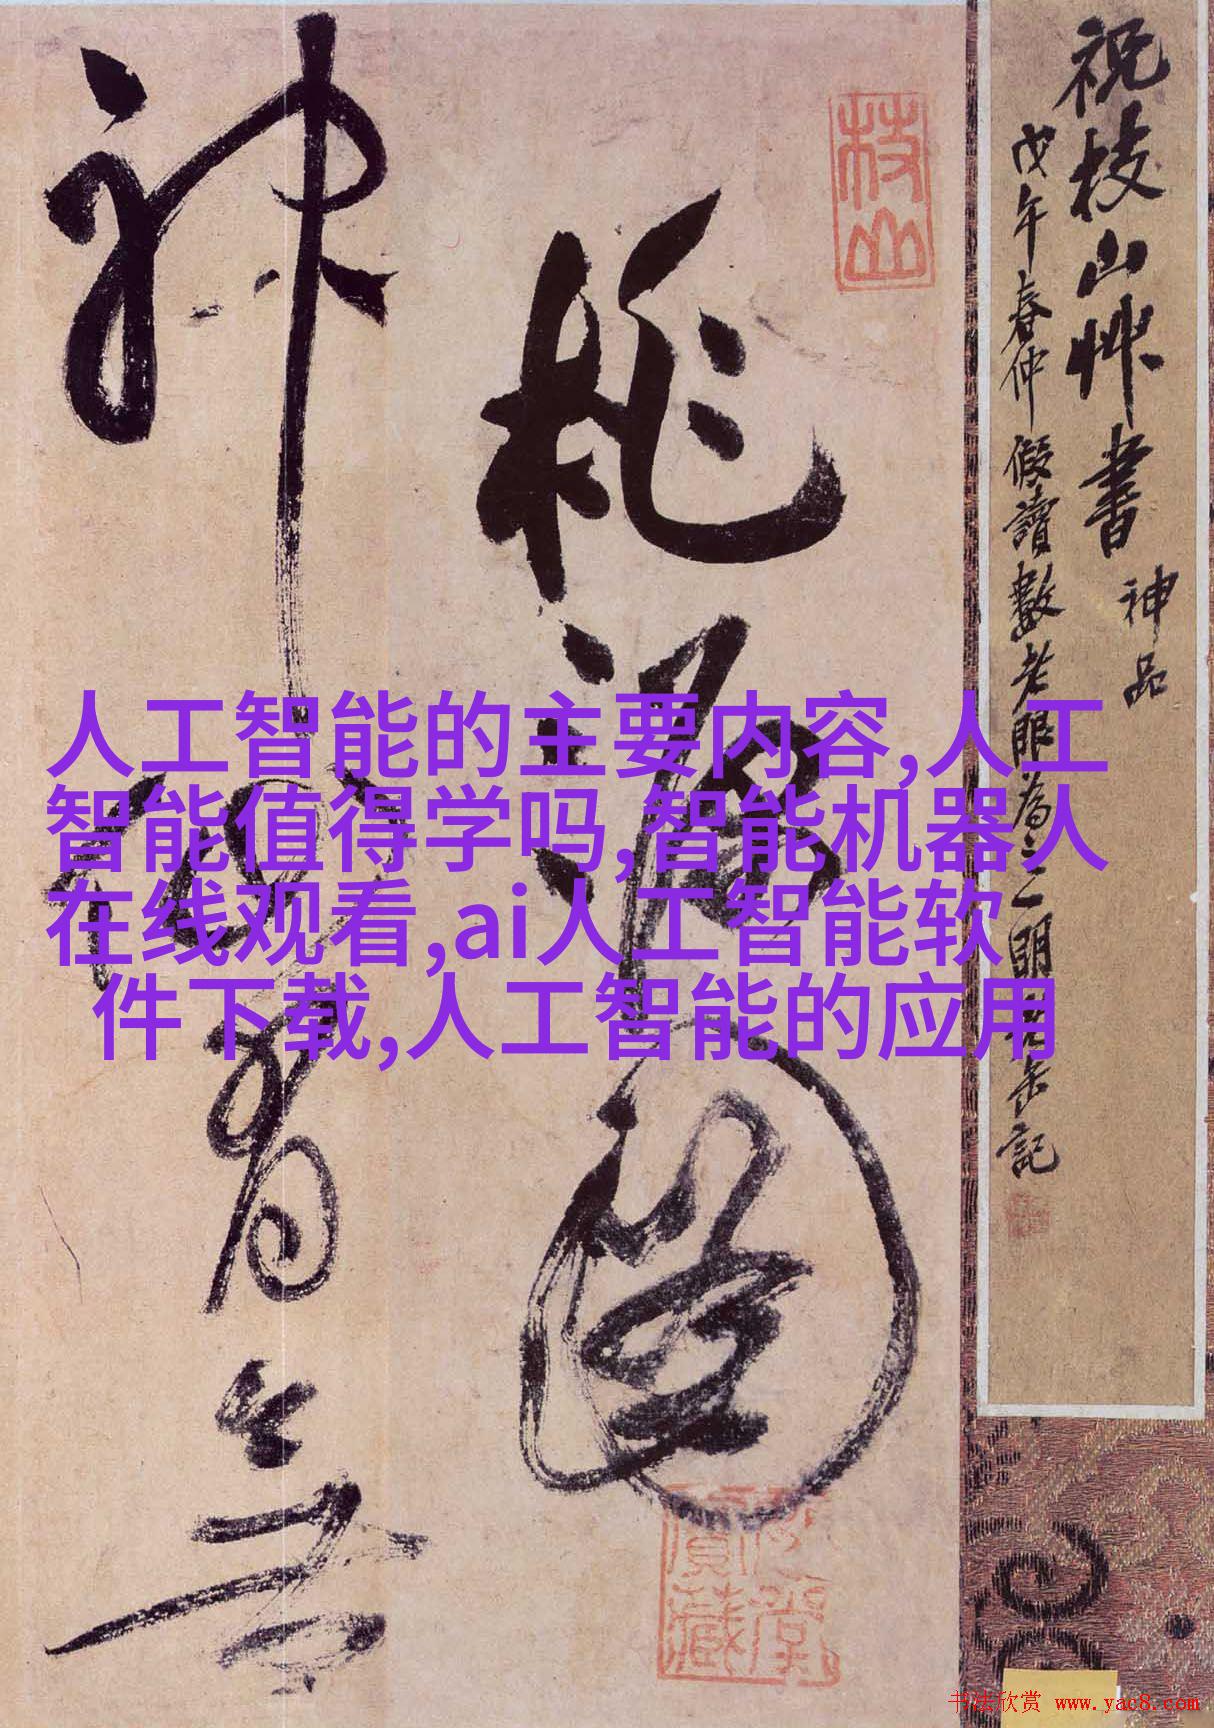 人工智能的主要内容,人工
智能值得学吗,智能机器人
在线观看,ai人工智能软
件下载,人工智能的应用
祝枝山艸書 神品
戊午春仲假讀數老眼為之明缶記
枝山
桃源圖
神仙有無
书法欣赏 www.yac8.com